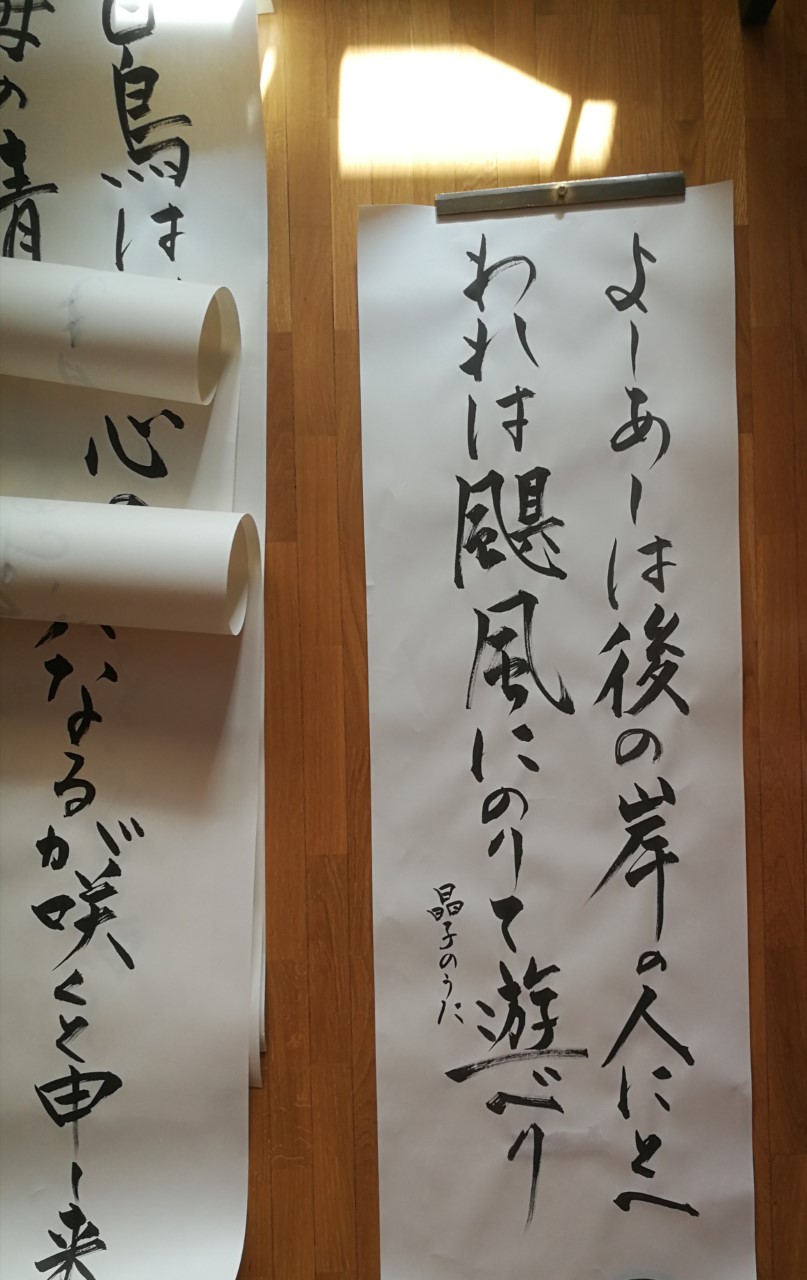 よしあしは後の岸の人にとへ
われは颶風にのりて遊べり
晶子のうた
白鳥は
の青
心
なるが咲くと申し来